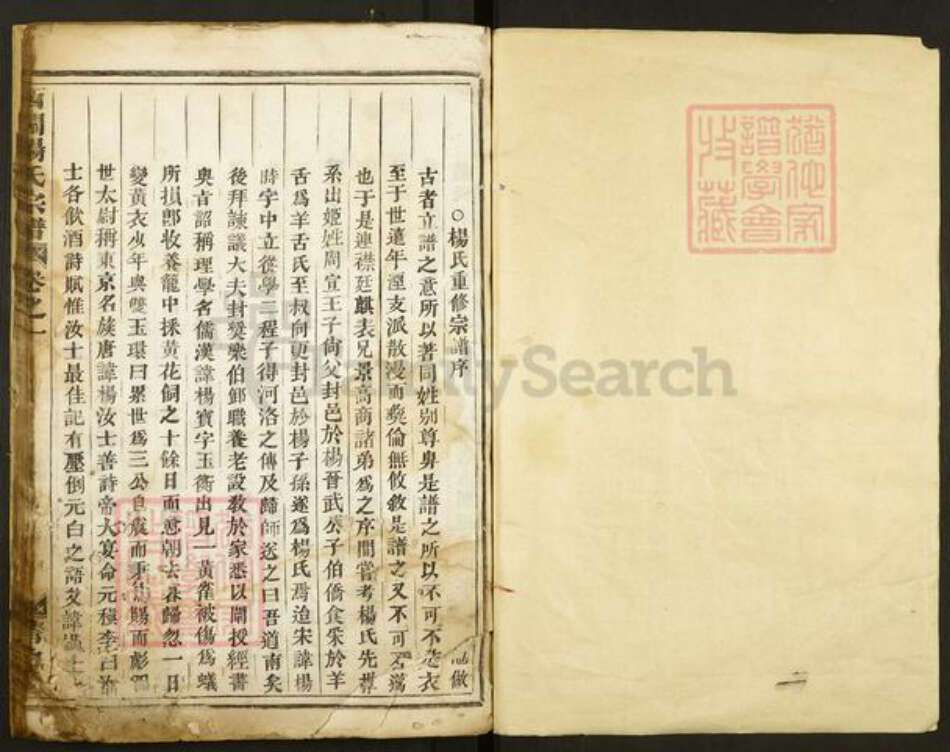 猶他家
譜學會
收藏
○楊氏重修宗譜序
古者立譜之意所以著同姓别尊卑是譜之所以不可不
至于世遠年湮支派散漫而彝倫無攸敘是譜之又不可
也于是連襟廷麒表兄景高商諸弟爲之序間嘗考楊氏先
系出姬姓周宣王子尙父封邑於楊晉武公子伯僑食采於羊
舌爲羊舌氏至叔向更封邑於楊子孫遂爲楊氏焉迨宋諱楊
時字中立從學二程子得河洛之傳及歸師送之曰吾道南矣
後拜諫議大夫封奬樂伯卸職養老設敎於家悉以闡授經書
奥旨詔稱理學名儒漢諱楊寶字玉衡出見一黃雀被傷爲蟻
所損卽收養籠中採黃花飼之十餘日而愈朝去暮歸忽一日
變黃衣少年與雙玉環曰累世爲三公自震而秉賜而彪
世太尉稱東京名族唐諱楊汝士善詩帝大宴命元稹李白
士各飲酒詩賦惟汝士最佳記有壓倒元白之語爻諱
楊氏宗譜 卷之一
FamilySearch